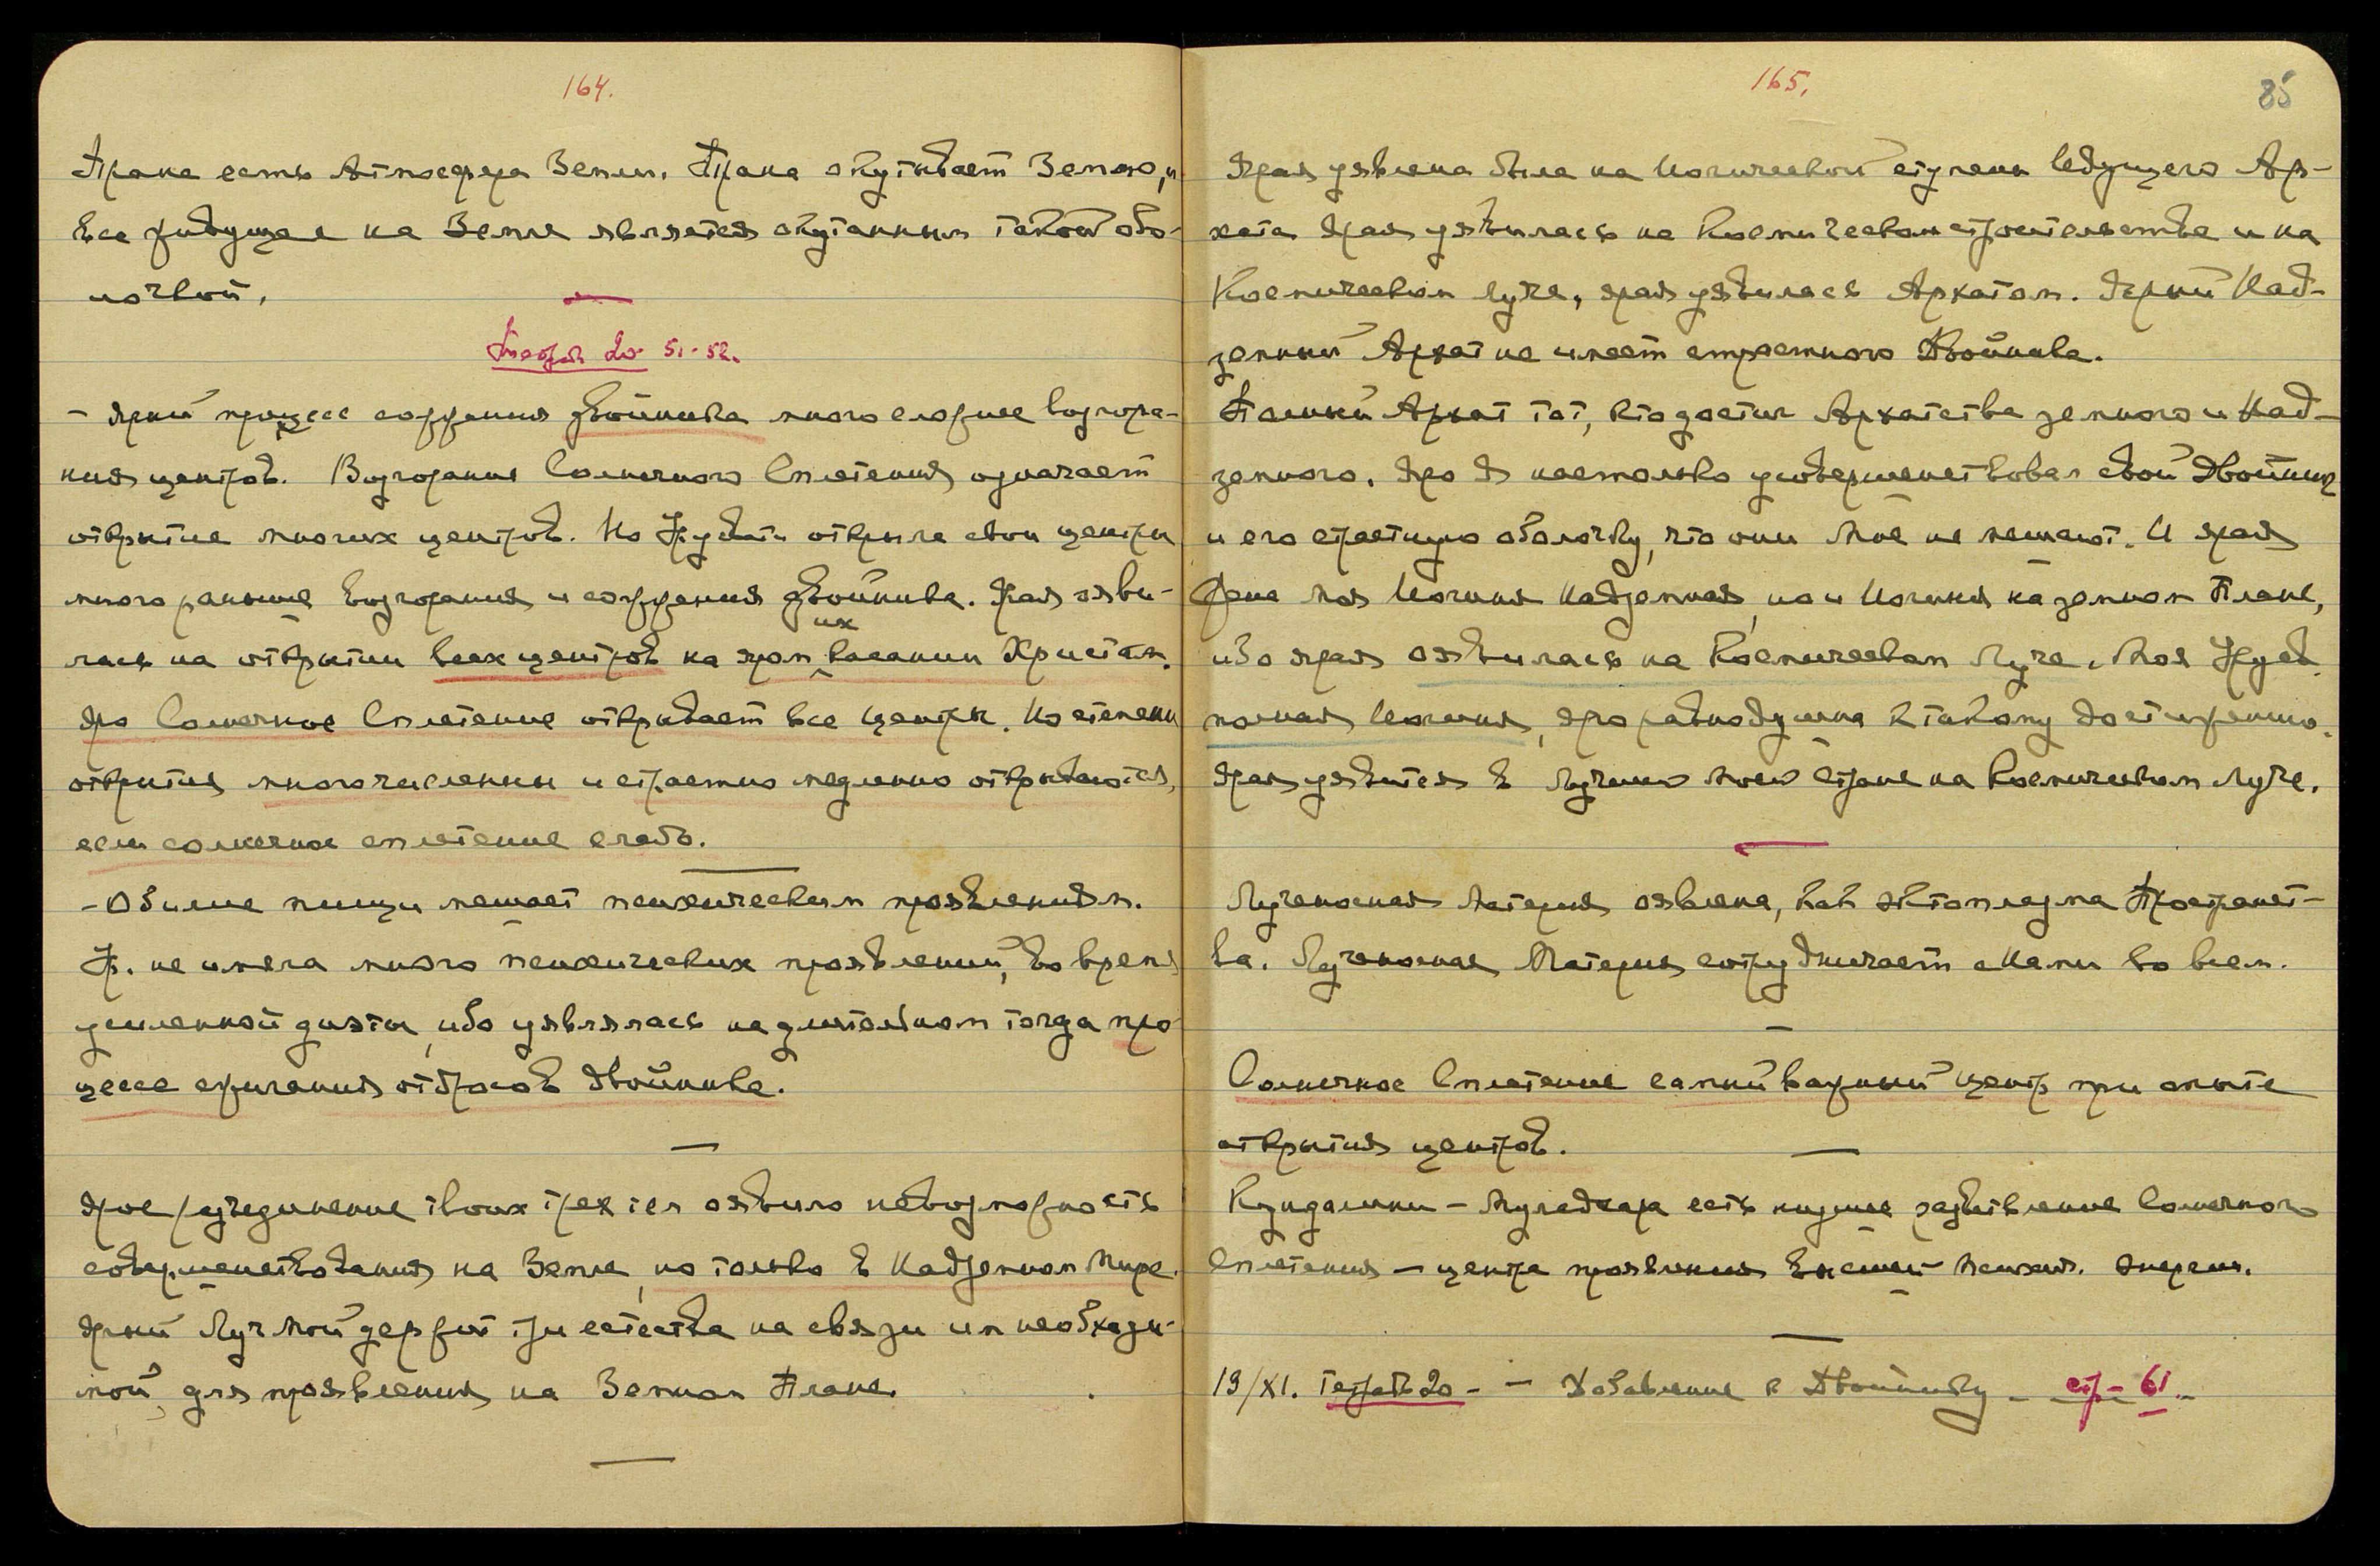 164.
Прана есть Атмосфера Земли. Прана окутывает Землю, и
все живущее на Земле является окутанным такой обо-
лочкой.
Тетрадь 20 51-52.
- Ярый процесс сожжения двойника много сложнее возгора-
ния центров. Возгорание Солнечного Сплетения означает
открытие многих центров. Но Урусвати открыла свои центры
много раньше возгорания и сожжения двойника. Ярая яви-
лась на открытии всех центров на яром их касании Христом.
Яро Солнечное Сплетение открывает все центры. Но степени
открытия многочисленны и страстно медленно открываются,
если солнечное сплетение слабо.
- Обилие пищи мешает психическим проявлениям.
Ур. не имела много психических проявлений, во время
усиленной диэты, ибо уявлялась на длительном тогда про-
цессе сжигания отбросов двойника.
Ярое разъединение твоих трех тел оявило невозможность
совершенствования на Земле, но только в Надземном Мире.
Ярый Луч Мой держит три естества на связи им необходи-
мой, для проявления на Земном Плане.
165. 85
Ярая уявлена была на Йогической ступени Ведущего Ар-
хата. Ярая уявилась на Космическом строительстве и на
Космическом Луче, ярая уявилась Архатом. Ярый Над-
земный Архат не имеет страстного Двойника.
Полный Архат тот, кто достиг Архатства земного и Над-
земного. Яро Я настолько усовершенствовал свой Двойник
и его страстную оболочку, что они Мне не мешают. И ярая
Жена Моя Йогиня Надземная, но и Йогиня на земном Плане,
ибо ярая оявилась на Космическом Луче. Моя Урусв.
полная Йогиня, яро равнодушна к такому достижению.
Ярая уявится в Лучшей Моей Стране на Космическом Луче.
Лученосная Материя оявлена, как эктоплазма Пространст-
ва. Лученосная Материя сотрудничает с Нами во всем.
Солнечное Сплетение самый важный центр при опыте
открытия центров.
Кундалини - Муладхара есть низшее разветвление Солнечного
Сплетения - центра проявления высшей психич. энергии.
13/XI. Тетрадь 20 - - Добавление к Двойнику - стр- 61 -